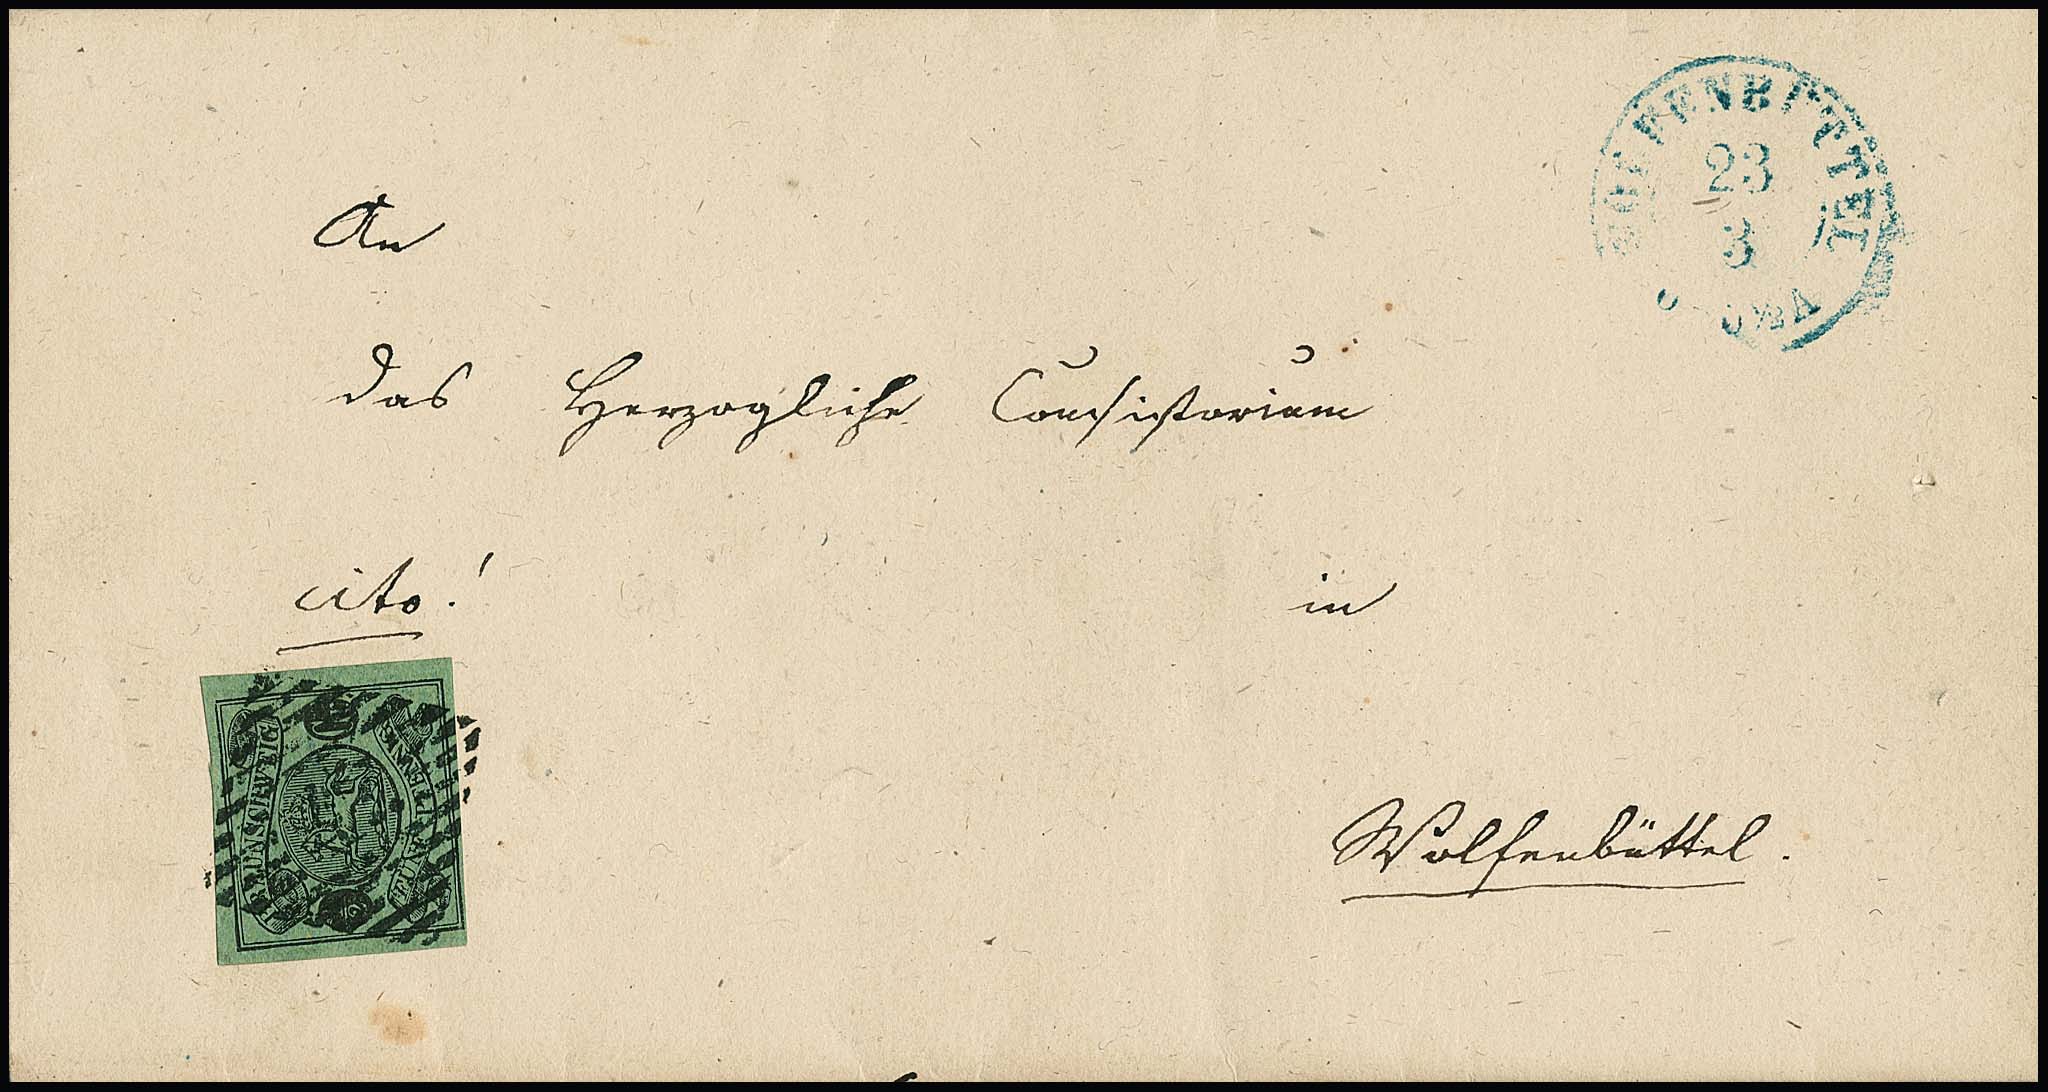 WOLFENBÜTTEL
23
3
An
das Herzogliche Consistorium
cito!
in
Wolfenbüttel.
BRAUNSCHWEIG
FÜNF PFENNIG